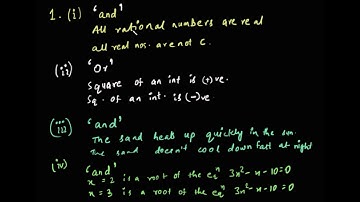 1. (i) 'and'
All rational numbers are real
all real nos. are not C.
(ii) 'Or'
Square of an int is (+)ve.
Sq. of an int. is (-)ve
(iii) 'and'
The sand heats up quickly in the sun.
The sand doesn't cool down fast at night
(iv) 'and'
x = 2 is a root of the eqⁿ 3x²-x-10=0
x = 3 is a root of the eqⁿ 3x²-x-10=0